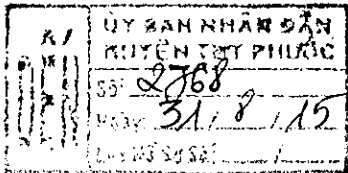 ỦY BAN NHÂN DÂN
HUYỆN TUY PHƯỚC
Số: 2768
Ngày: 31/8/15
Lưu hồ sơ số: /